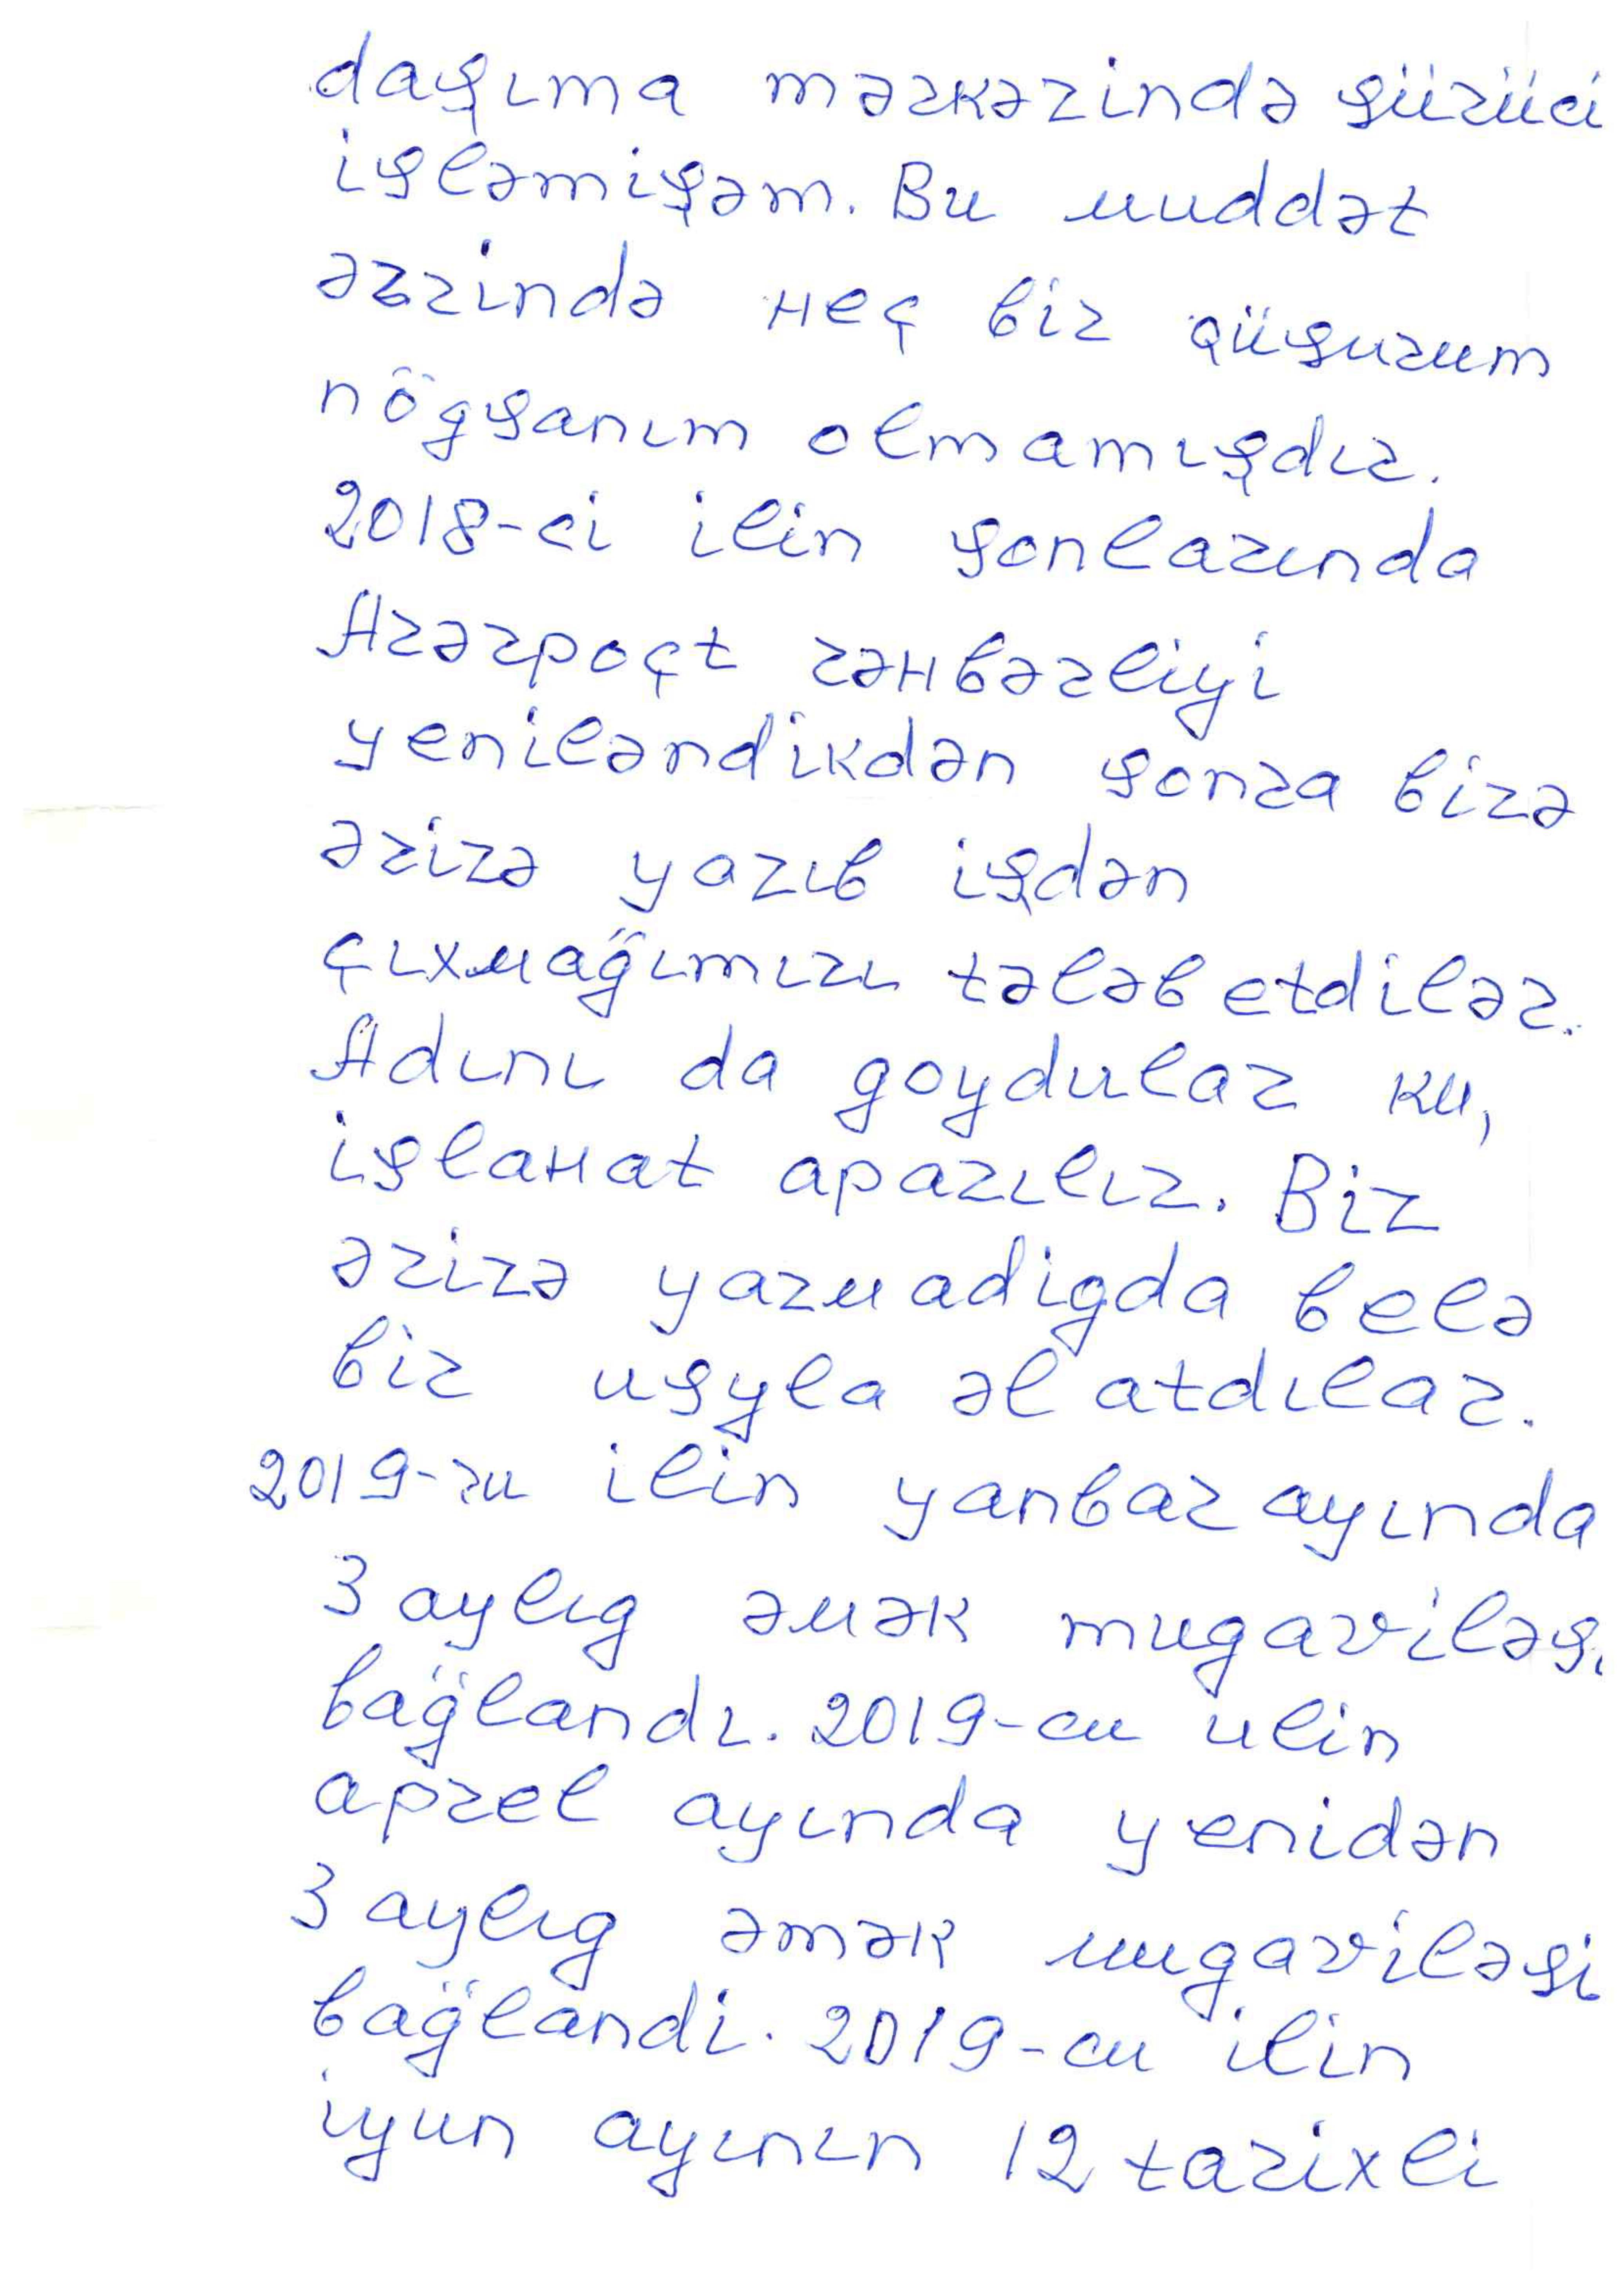 daşıma mərkəzində sürücü
işləmişəm. Bu muddət
ərzində heç bir qüsurum
nögsanım olmamışdır.
2018-ci ilin sonlarında
Azərpoçt rəhbərliyi
yeniləndikdən sonra bizə
ərizə yazıb işdən
çıxmağımızı tələb etdilər.
Adını da goydular ku,
islahat aparılır. Biz
ərizə yazmadigda belə
bir usula əl atdılar.
2019-zu ilin yanbar ayında
3 aylıg əmək mugaviləsi
bağlandı. 2019-cu ilin
aprel ayında yenidən
3 aylıg əmək mugaviləsi
bağlandi. 2019-cu ilin
iyun ayının 12 tarixli